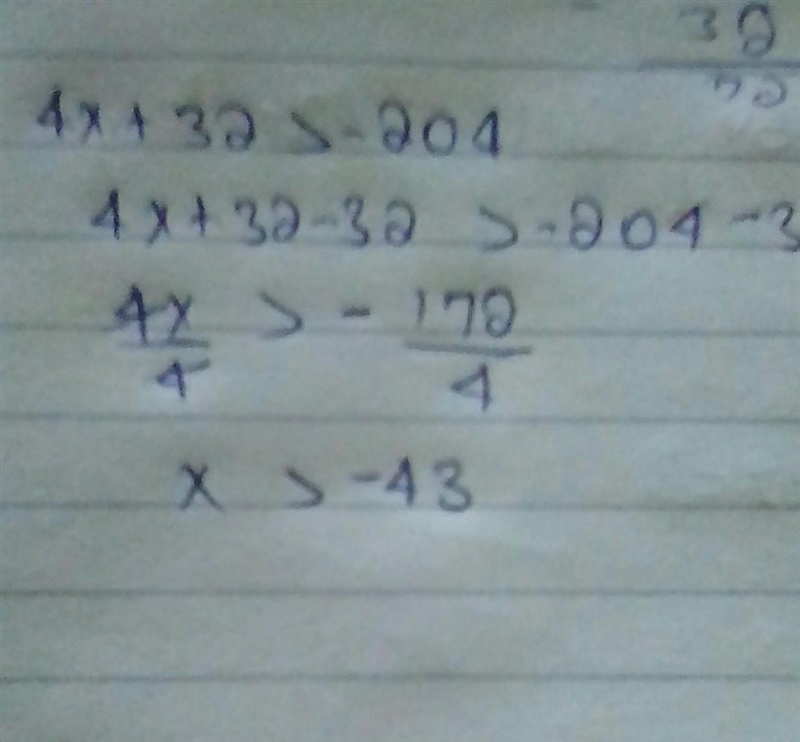 32
4x + 32 > -204
4x + 32 - 32 > -204 - 3
4x/4 > - 172/4
x > -43